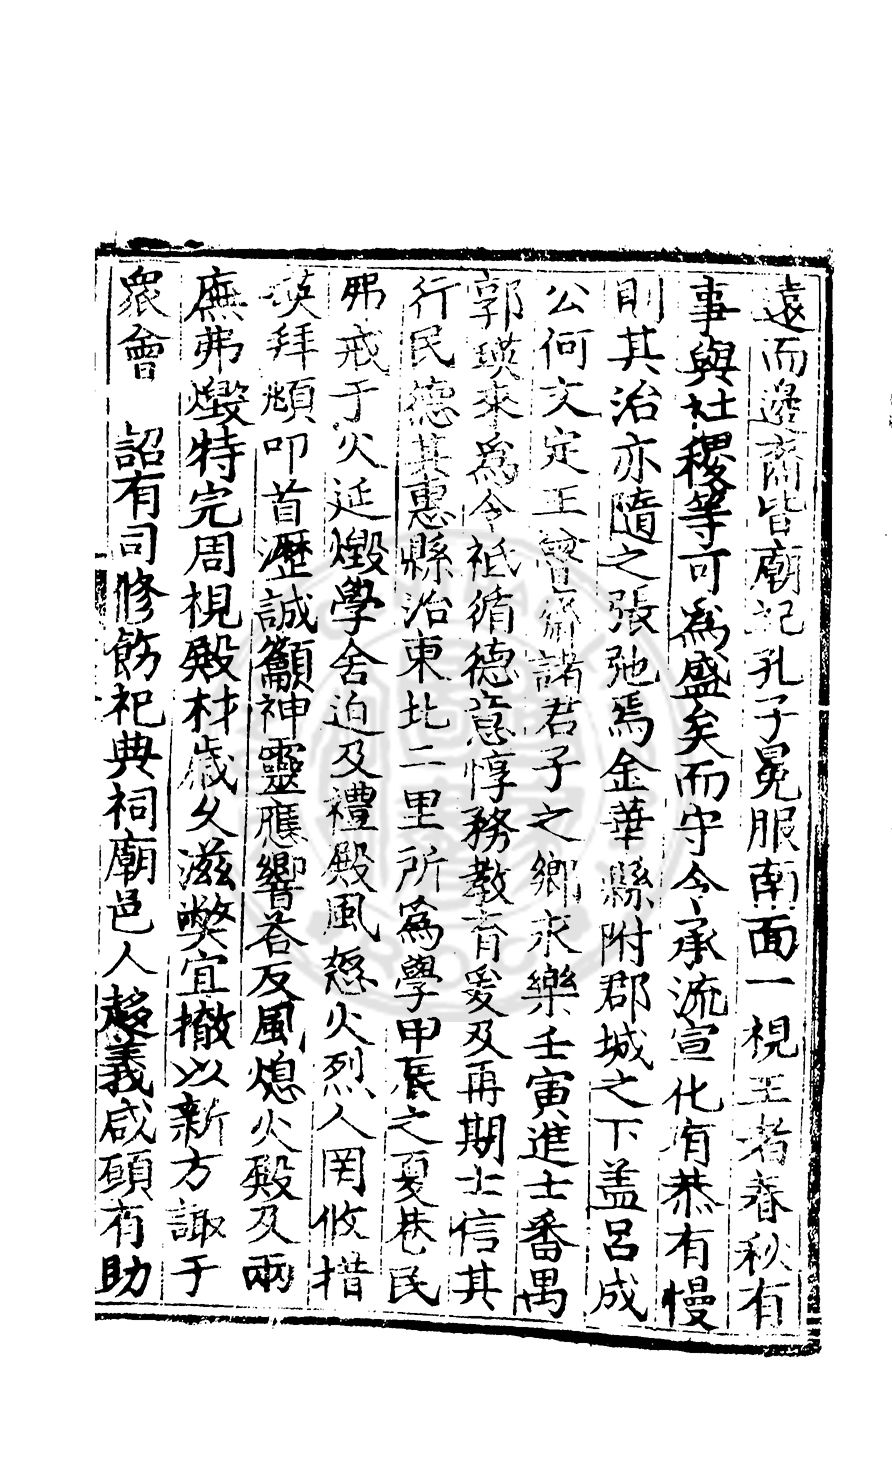 遠而邊裔皆廟祀孔子冕服南面一視王者春秋有
事與社稷等可爲盛矣而守令承流宣化有恭有慢
則其治亦隨之張弛焉金華縣附郡城之下盖呂成
公何文定王曾齋諸君子之鄉永樂壬寅進士番禺
郭瑛來爲令祗循德意惇務敎育爰及再期士信其
行民德其惠縣治東北二里所爲學甲辰之夏巷民
弗戒于火延燬學舍迫及禮殿風怒火烈人罔攸措
瑛拜頫叩首瀝誠籲神靈應響荅反風熄火殿及兩
廡弗燬特完周視殿材歲久滋弊宜撤以新方諏于
衆會　詔有司修飭祀典祠廟邑人趍義咸碩有助